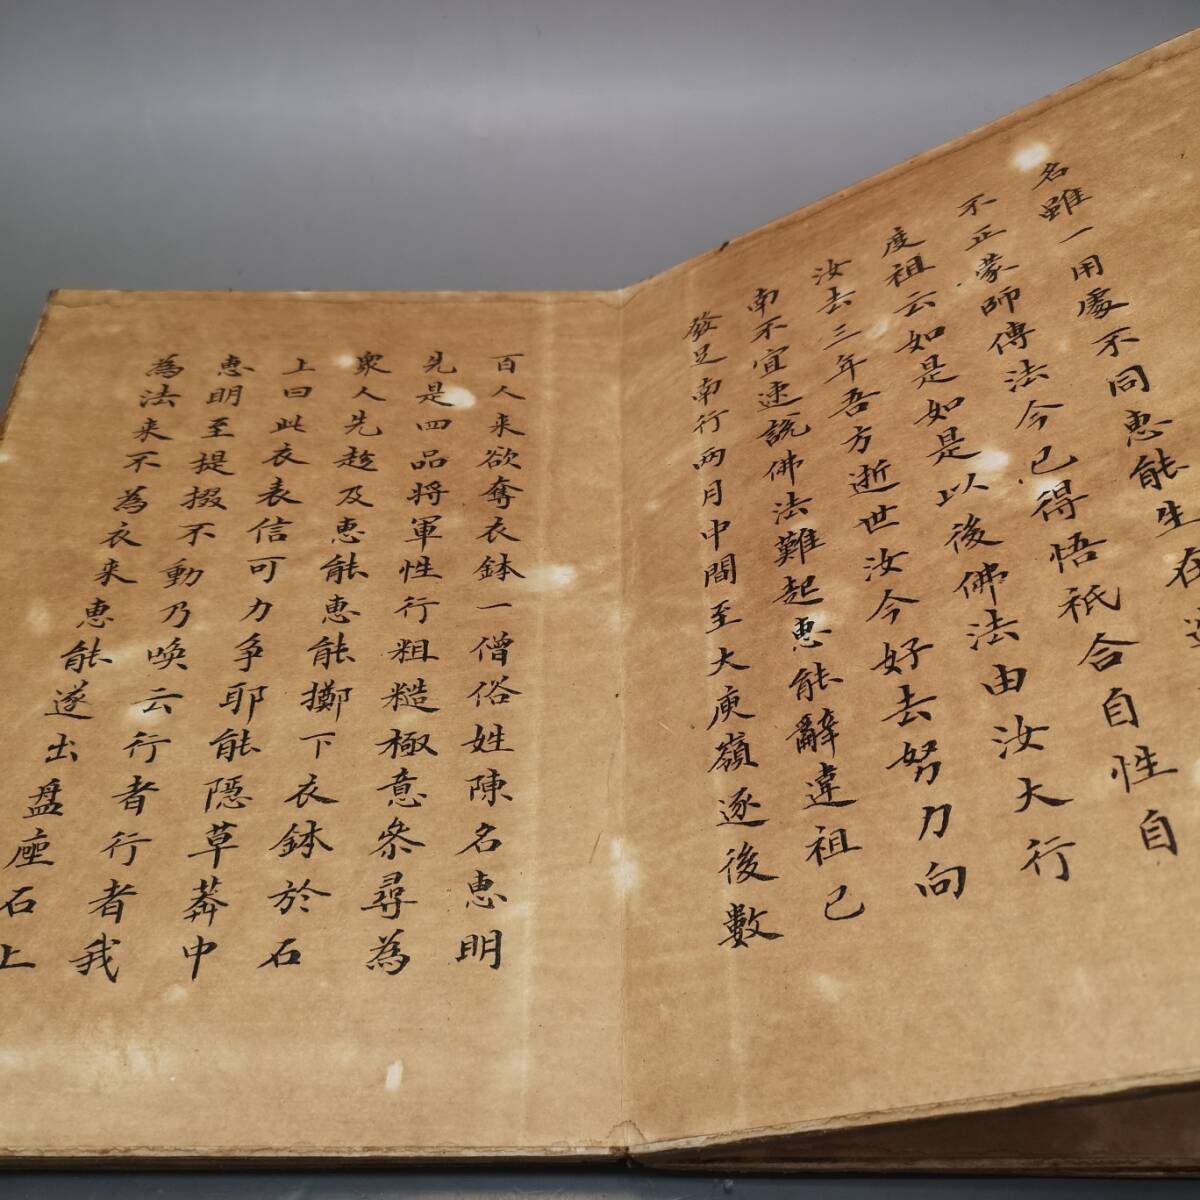 名雖一用處不同惠能生在邊
不正蒙師傳法今已得悟祇合自性自
度祖云如是如是以後佛法由汝大行
汝去三年吾方逝世汝今好去努力向
南不宜速說佛法難起惠能辭違祖已
發足南行兩月中間至大庾嶺逐後數
百人来欲奪衣鉢一僧俗姓陳名惠明
先是四品将軍性行粗糙極意叅尋為
衆人先趁及惠能惠能擲下衣鉢於石
上曰此衣表信可力争耶能隱草莽中
惠明至提掇不動乃喚云行者行者我
為法来不為衣来惠能遂出盤座石上